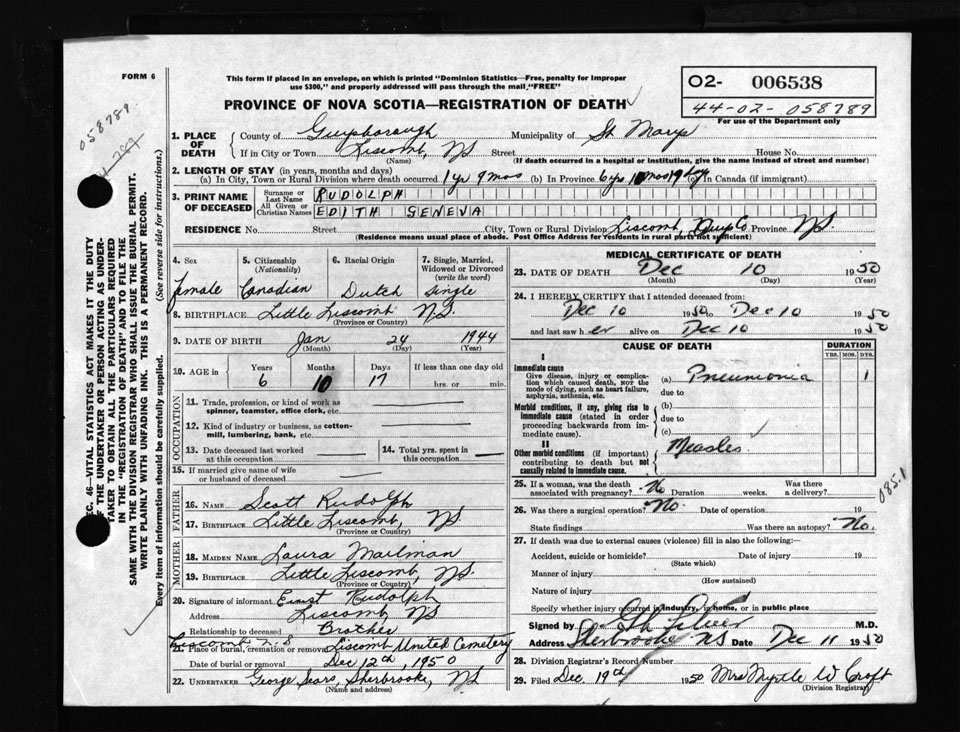 FORM 6
This form if placed in an envelope, on which is printed "Dominion Statistics—Free, penalty for improper
use $300," and properly addressed will pass through the mail "FREE"
PROVINCE OF NOVA SCOTIA—REGISTRATION OF DEATH
02- 006538
44-02-058789
For use of the Department only
058789
1. PLACE OF DEATH
County of Guysborough Municipality of St Marys
If in City or Town Liscomb, NS Street House No.
(Name) (If death occurred in a hospital or institution, give the name instead of street and number)
2. LENGTH OF STAY (in years, months and days)
(a) In City, Town or Rural Division where death occurred 1 yr 9 mos (b) In Province 6 yrs 10 mos 17 dys (c) In Canada (if immigrant)
3. PRINT NAME OF DECEASED
Surname or Last Name RUDOLPH
All Given or Christian Names EDITH GENEVA
RESIDENCE No. Street City, Town or Rural Division Liscomb, Guys Co Province NS.
(Residence means usual place of abode. Post Office Address for residents in rural parts not sufficient)
4. Sex 5. Citizenship (Nationality) 6. Racial Origin 7. Single, Married, Widowed or Divorced (write the word)
female Canadian Dutch Single
8. BIRTHPLACE Little Liscomb NS.
(Province or Country)
9. DATE OF BIRTH Jan 24 1944
(Month) (Day) (Year)
10. AGE in Years Months Days If less than one day old
6 10 17 hrs. or min.
OCCUPATION
11. Trade, profession, or kind of work as
spinner, teamster, office clerk, etc.
12. Kind of industry or business, as cotton-
mill, lumbering, bank, etc.
13. Date deceased last worked at this occupation
14. Total yrs. spent in this occupation
15. If married give name of wife
or husband of deceased
FATHER
16. NAME Scott Rudolph
17. BIRTHPLACE Little Liscomb, NS.
(Province or Country)
MOTHER
18. MAIDEN NAME Laura Mailman
19. BIRTHPLACE Little Liscomb, NS.
(Province or Country)
20. Signature of informant Ernst Rudolph
Address Liscomb NS
Relationship to deceased Brother
Liscomb N.S
21. Place of burial, cremation or removal Liscomb United Cemetery
Date of burial or removal Dec 12th, 1950
22. UNDERTAKER George Sears, Sherbrooke, NS
(Name and address)
MEDICAL CERTIFICATE OF DEATH
23. DATE OF DEATH Dec 10 1950
(Month) (Day) (Year)
24. I HEREBY CERTIFY that I attended deceased from:
Dec 10 1950 to Dec 10 1950
and last saw her alive on Dec 10 1950
CAUSE OF DEATH DURATION
YRS. MOS. DYS.
I
Immediate cause
Give disease, injury or complica-
tion which caused death, NOT the
mode of dying, such as heart failure,
asphyxia, asthenia, etc.
(a) Pneumonia 1
due to
Morbid conditions, if any, giving rise to
immediate cause (stated in order
proceeding backwards from im-
mediate cause).
(b)
due to
(c)
II
Other morbid conditions (if important)
contributing to death but not
causally related to immediate cause.
Measles
085.1
25. If a woman, was the death
associated with pregnancy? No Duration weeks. Was there a delivery?
26. Was there a surgical operation? No. Date of operation 19
State findings Was there an autopsy? No.
27. If death was due to external causes (violence) fill in also the following:—
Accident, suicide or homicide? Date of injury 19
(State which)
Manner of injury
(How sustained)
Nature of injury
Specify whether injury occurred in industry, in home, or in public place
Signed by M.D.
Address Sherbrooke NS Date Dec 11 1950
28. Division Registrar's Record Number
29. Filed Dec. 19th 1950 Mrs Myrtle W Croft
(Division Registrar)
SEC. 46—VITAL STATISTICS ACT MAKES IT THE DUTY
OF THE UNDERTAKER OR PERSON ACTING AS UNDER-
TAKER TO OBTAIN ALL THE PARTICULARS REQUIRED
IN THE "REGISTRATION OF DEATH" AND TO FILE THE
SAME WITH THE DIVISION REGISTRAR WHO SHALL ISSUE THE BURIAL PERMIT.
WRITE PLAINLY WITH UNFADING INK. THIS IS A PERMANENT RECORD.
Every item of information should be carefully supplied. (See reverse side for instructions.)